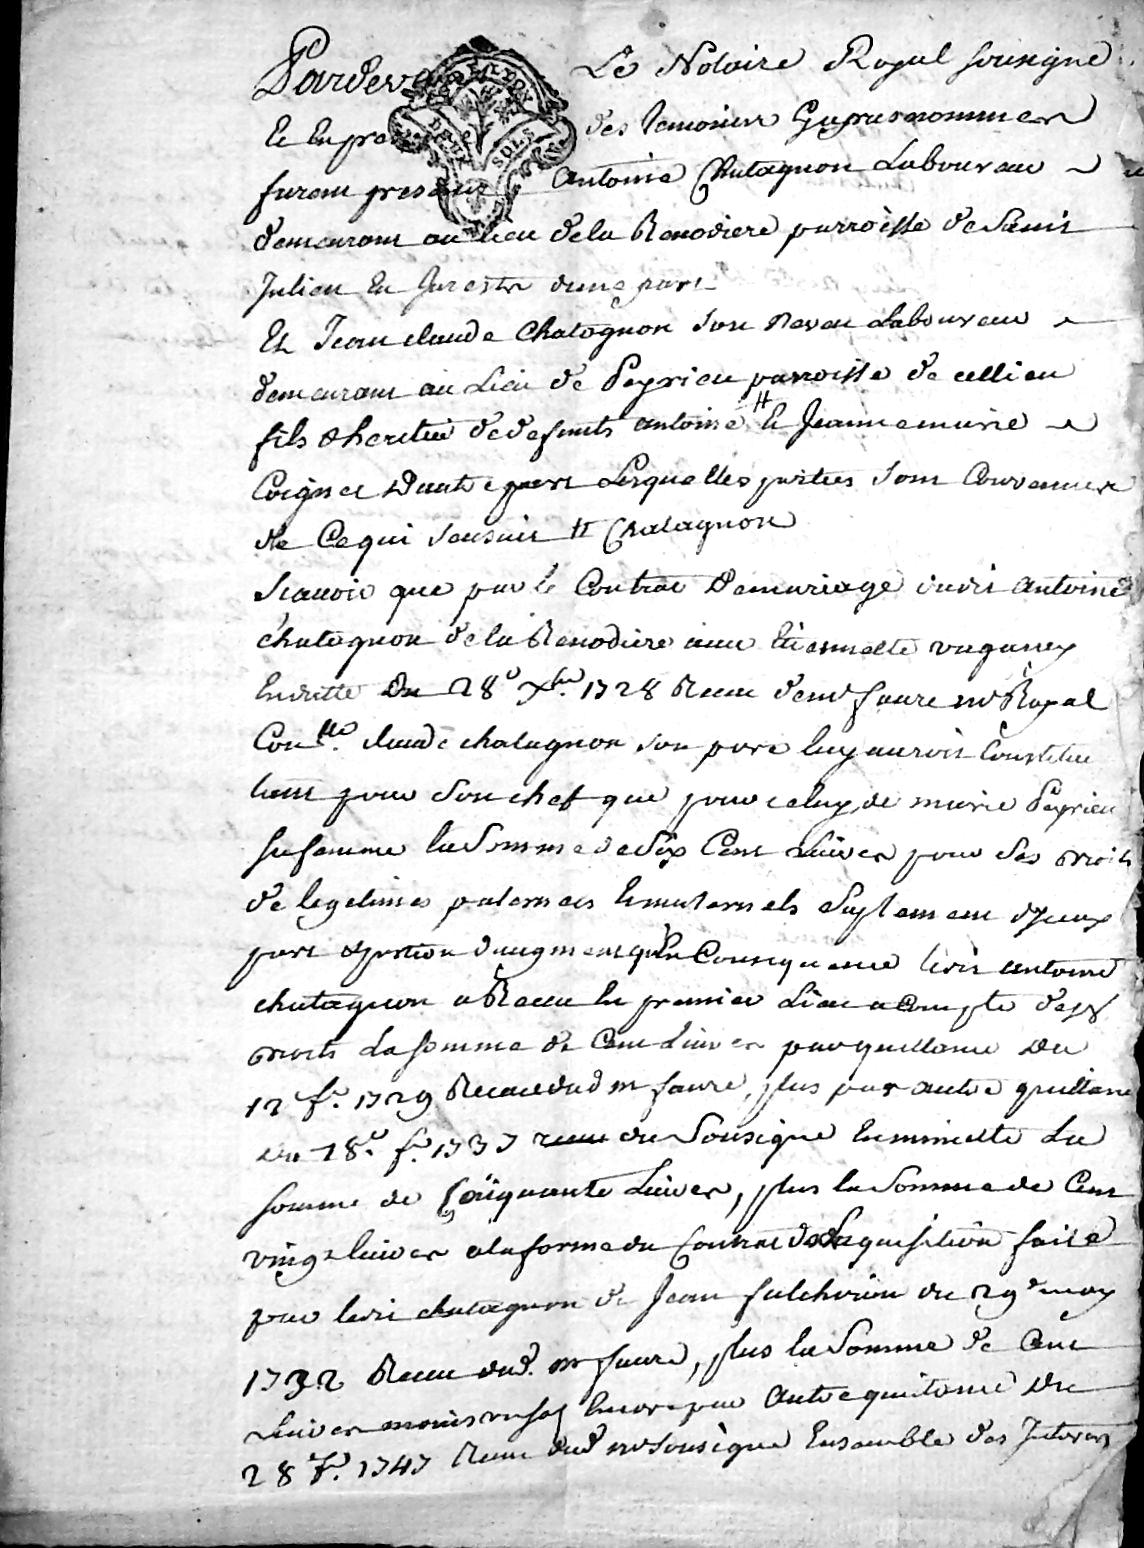 Pardevant Le Notaire Royal sousigne
Et En pre des temoins Gyapres nommes
furent presens Antoine Chatagnon Laboureur
demeurant au lieu de la Renodiere parroisse de Saint
Julien En Jarests dune part
Et Jean claude Chatagnon son Neveu Laboureur
demeurant au Lieu de Peyrieu parroisse de cellieu
fils & heritier de defunts antoine # & Jeanne marie
Coignet Dautre part Lesquelles parties sont Convenues
de Ce qui sensuit # Chatagnon
Scavoir que par le Contrat De mariage dudit Antoine
chatagnon de la Renodiere avec Etiennette
du 28e Xbre 1728 Receu de me faure nre Royal
claude chatagnon son pere luy auroit Constitue
tant pour son chef que pour celuy de marie Peyrieu
sa femme la Somme de Six Cent Livres pour ses droits
de legitimes paternels & maternels Suplement dyceux
part & portion daugment qu'En Consequence ledit antoine
chatagnon a Receu En premier Lieu a Compte desd
droits La somme de Cent Livres par quittance Du
12 fr. 1729 Receue dud me faure, plus par autre quittance
du 18e fr. 1737 receu du Sousigne En minutte La
somme de Cinquante Livres, plus la Somme de Cent
vingt livres a la forme du Contrat dacquisition faite
par ledit chatagnon de Jean fulchiron du 29e may
1732 Receu dud. me faure, plus la Somme de Cent
Livres moins un sol Encore par Autre quittance Du
28 fr. 1747 Receu dud nre sousigne Ensemble des Interets